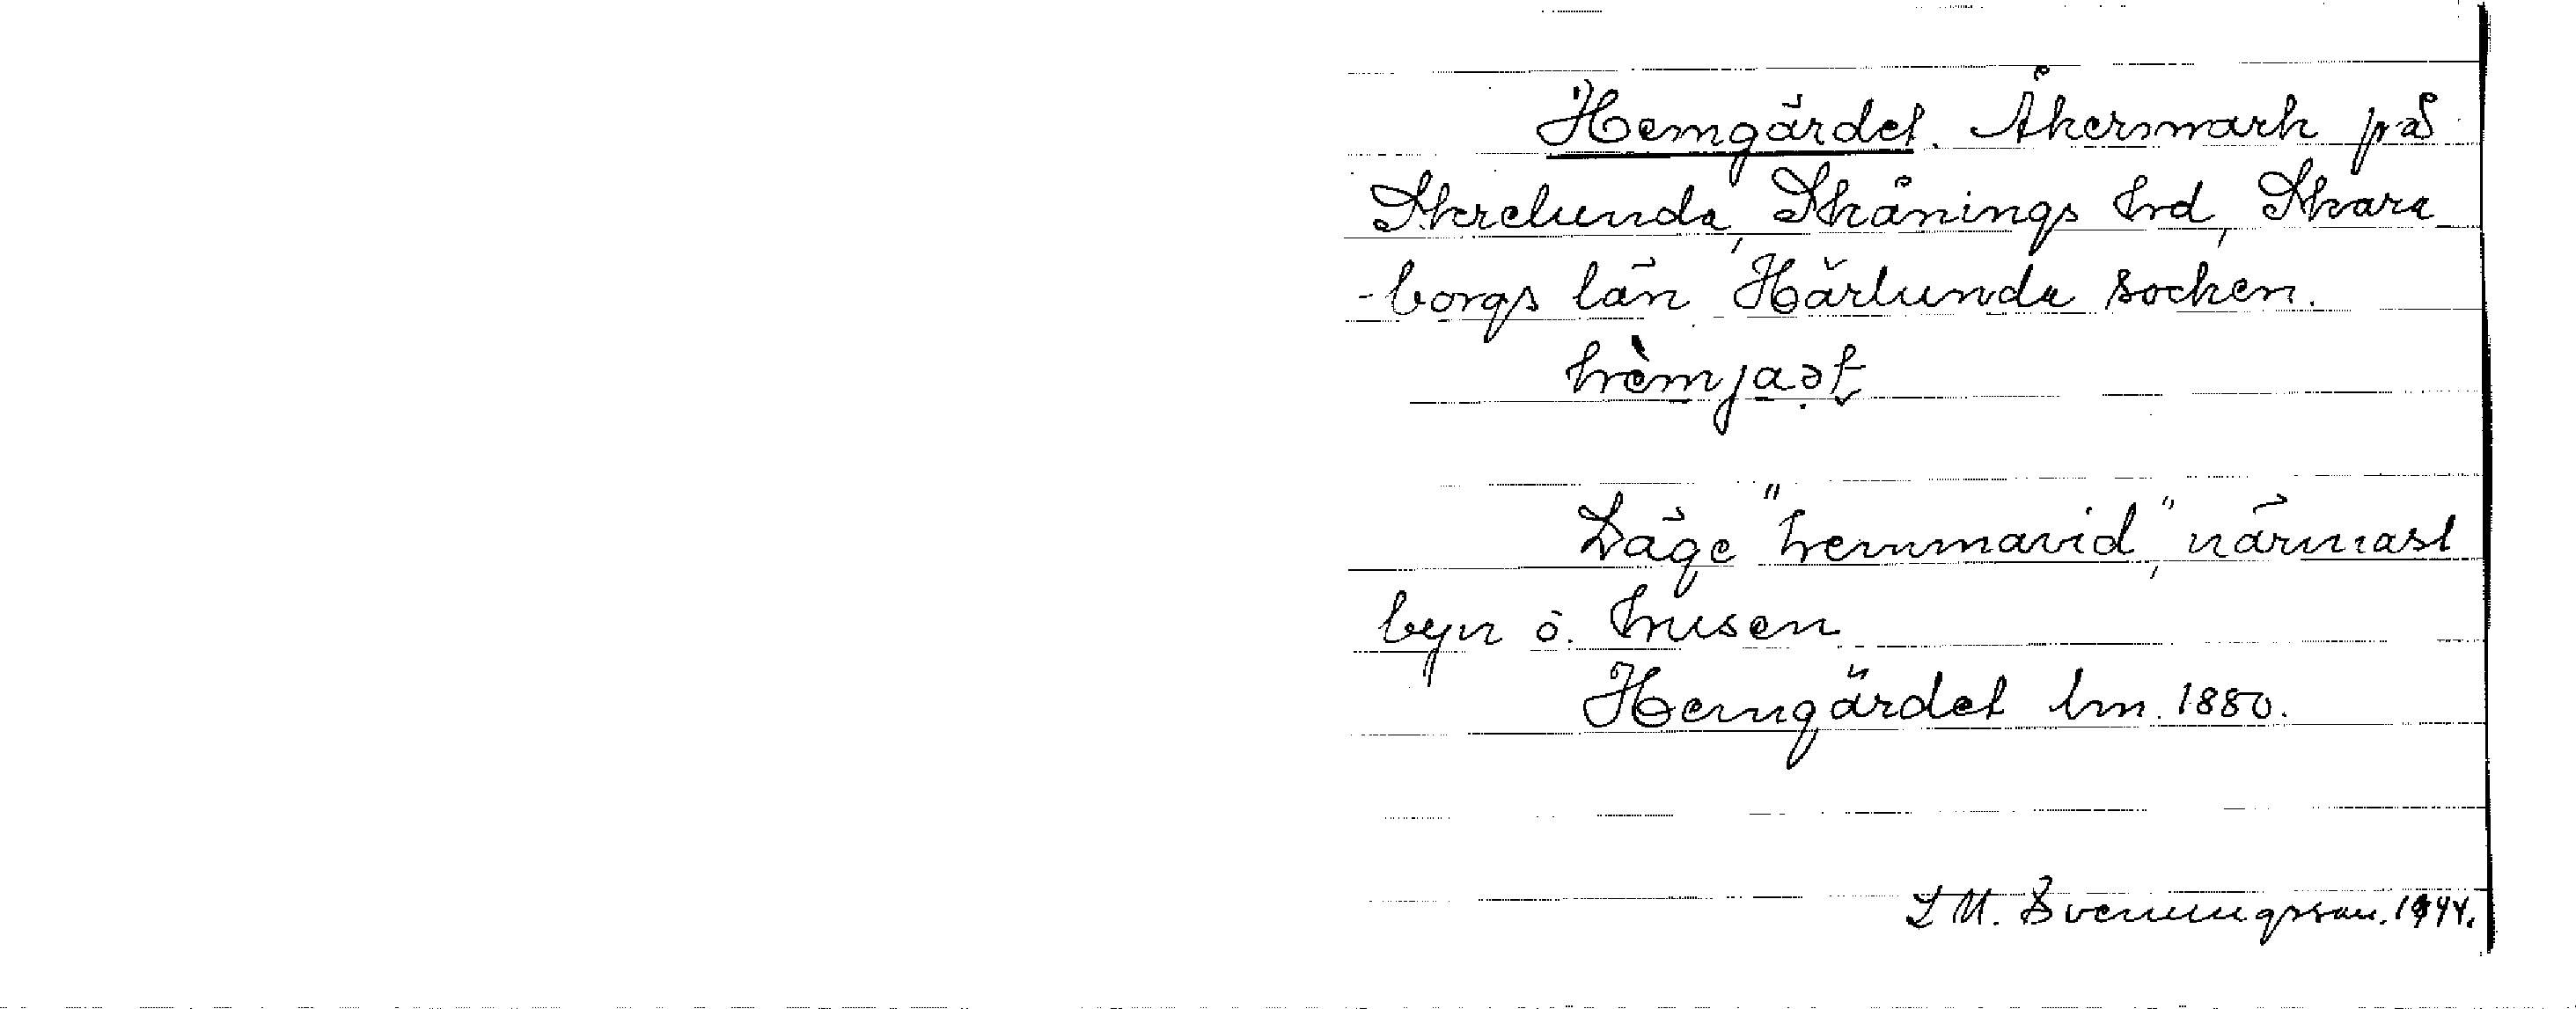 Hemgärdet. Åkersmark på
Skrelunda, Skånings hrd, Skara
-borgs län Härlunda socken.
hèmjaət
Läge "hemmavid", närmast
byn ö. husen
Hemgärdet lm. 1880.
L M. Svenningsson. 1944.